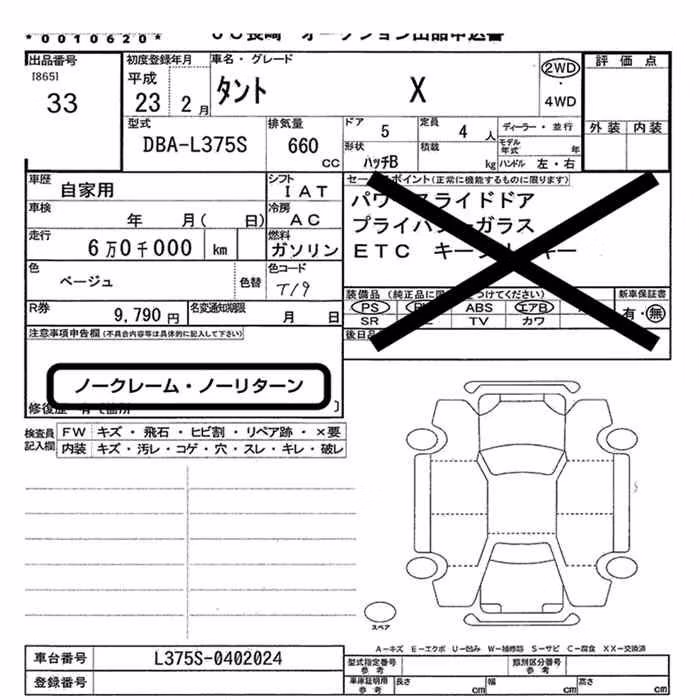 *0010620* JU長崎 オークション出品申込書
出品番号
[865]
33
初度登録年月
平成
23 2 月
車名・グレード
タント X
2WD
・
4WD
評価点
外装 内装
型式
DBA-L375S
排気量
660
CC
ドア 5
定員 4 人
ディーラー・並行
形状 ハッチB
積載 kg
モデル年式 年
ハンドル 左・右
車歴 自家用
シフト IAT
車検 年 月( 日)
冷房 AC
走行 6万0千000 km
燃料 ガソリン
色 ベージュ
色替
色コード
T19
R券 9,790円
名変通知期限 月 日
セールスポイント(正常に機能するものに限ります)
パワースライドドア
プライバシーガラス
ETC キー
装備品(純正品に つけてください)
PS ABS エアB
SR TV カワ
新車保証書
有・無
後日
注意事項申告欄(不具合内容等は具体的に記入して下さい)
ノークレーム・ノーリターン
修復歴
検査員記入欄
FW キズ・飛石・ヒビ割・リペア跡・×要
内装 キズ・汚レ・コゲ・穴・スレ・キレ・破レ
スペア
A-キズ E-エクボ U-凹み W-補修跡 S-サビ C-腐食 XX-交換済
車台番号 L375S-0402024
登録番号
型式指定番号参考
類別区分番号参考
車庫証明用参考
長さ cm
幅 cm
高さ cm